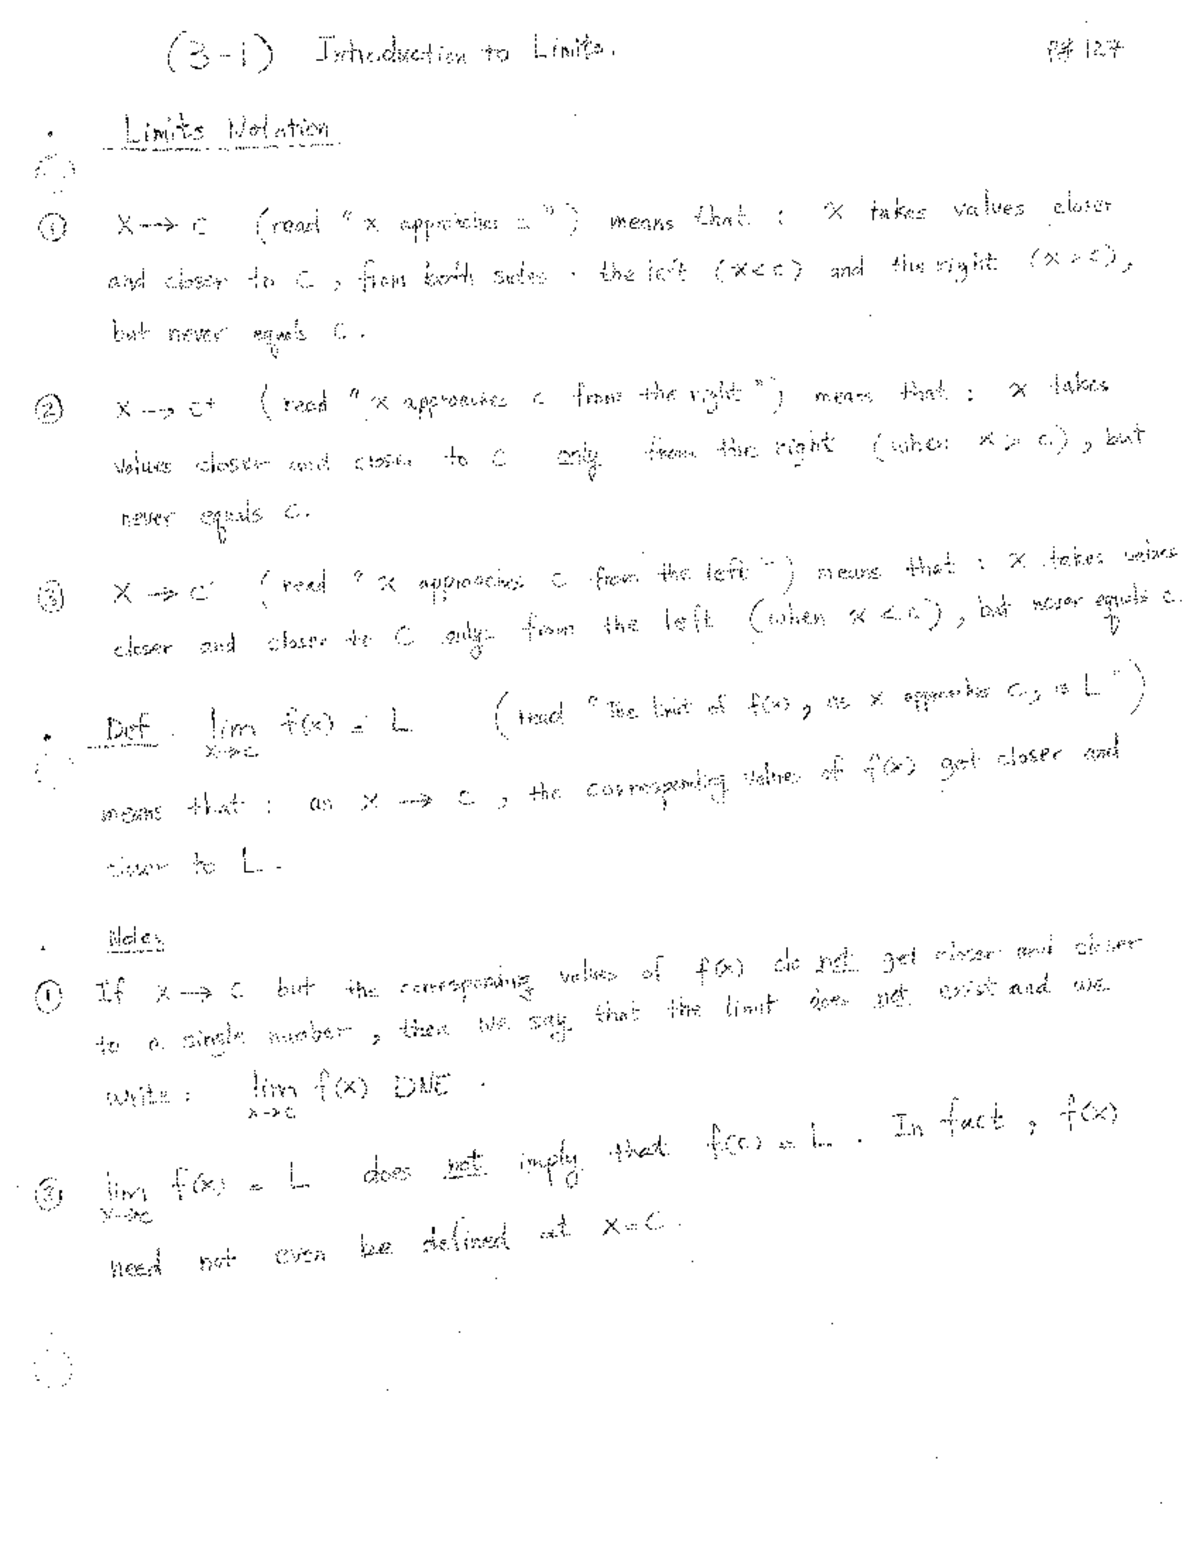 (3-1) Introduction to Limits. P# 127
• Limits Notation
① X → C (read "x approaches c") means that : x takes values closer
and closer to C , from both sides . the left (x<c) and the right (x>c),
but never equals C .
② X → C⁺ (read "x approaches c from the right") means that : x takes
values closer and closer to C only from the right (when x > c) , but
never equals C.
③ X → C⁻ (read "x approaches c from the left") means that : x takes values
closer and closer to C only from the left (when x < c) , but never equals c.
• Def . lim f(x) = L (read "The limit of f(x) , as x approaches c, is L")
x→c
means that : as x → c , the corresponding values of f(x) get closer and
closer to L .
• Notes
① If x → c but the corresponding values of f(x) do not get closer and closer
to a single number , then we say that the limit does not exist and we
write : lim f(x) DNE .
x→c
② lim f(x) = L does not imply that f(c) = L . In fact , f(x)
x→c
need not even be defined at x=c .